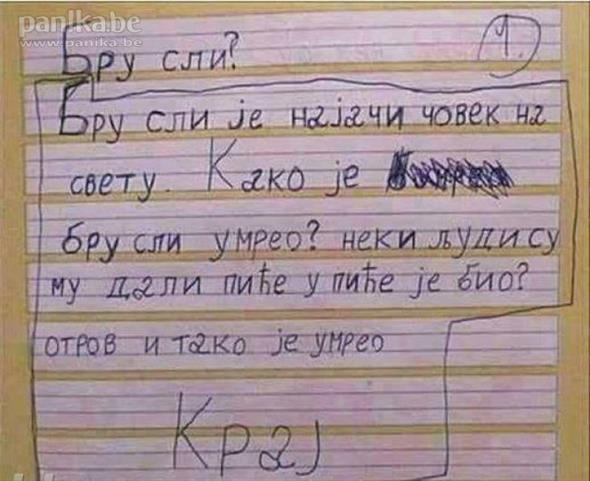 panika.be
www.panika.be
Бру сли?
1.
Бру сли је најачи човек на
свету. Како је
бру сли умрео? неки људи су
му дали пиће у пиће је био?
отров и тако је умрео
Крај